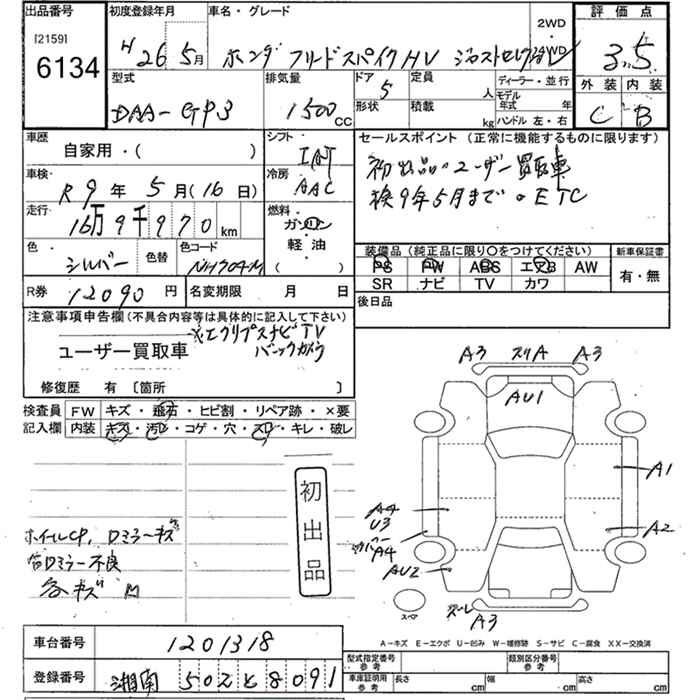 出品番号 初度登録年月 車名・グレード 2WD 評価点
[2159] H 26年 5月 ホンダ フリードスパイクHV ジャストセレクション 3.5
6134
型式 排気量 ドア 定員 ディーラー・並行 外装 内装
DAA-GP3 1500CC 5 人 モデル年式 年 C B
形状 積載 kg ハンドル 左・右
車歴 シフト セールスポイント(正常に機能するものに限ります)
自家用・( ) IAT 初出品・ユーザー買取車
車検 冷房
R9年 5月(16日) AAC 検9年5月まで。ETC
走行 燃料
16万9千970km ガソリン
軽・油
( )
色 色替 色コード 装備品(純正品に限り〇をつけてください) 新車保証書
シルバー NH704M PS FW ABS エアB AW 有・無
SR ナビ TV カワ
R券 12090円 名変期限 月 日 後日品
注意事項申告欄(不具合内容等は具体的に記入して下さい)
※エクリプスナビTV
ユーザー買取車 バックカメラ
修復歴 有〔箇所 〕
検査員 FW キズ・飛石・ヒビ割・リペア跡・×要
記入欄 内装 キズ・汚レ・コゲ・穴・スレ・キレ・破レ
A3 スリA A3
AU1
A1
A4
U3
A2
カバー
A4
AU2
スペア
ズーレ
A3
初出品
ホイールCP, Dミラーキズ
Dミラー不良
各キズ M
A-キズ E-エクボ U-凹み W-補修跡 S-サビ C-腐食 XX-交換済
車台番号 1201318
登録番号 湘南 502 と 8091
型式指定番号 参考 類別区分番号 参考
車庫証明用 参考 長さ cm 幅 cm 高さ cm